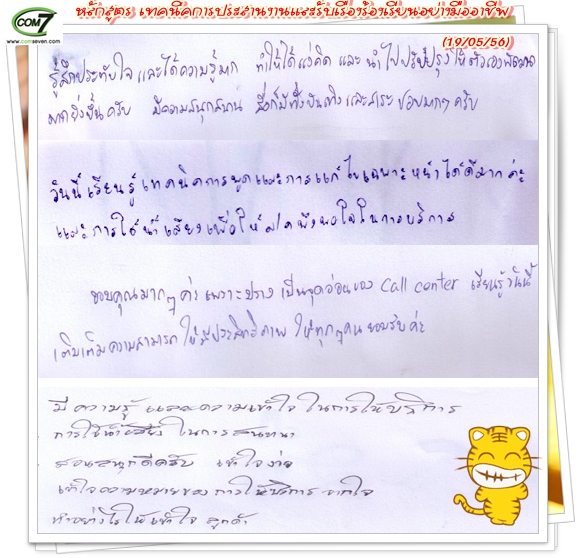 COM7
www.comseven.com
หลักสูตร เทคนิคการประสานงานและรับเรื่องร้องเรียนอย่างมืออาชีพ
(19/05/56)
รู้สึกประทับใจ และได้ความรู้มาก ทำให้ได้แง่คิด และ นำไปปรับปรุงให้ตัวเอง
มากยิ่งขึ้นครับ มีความสนุกสนาน สื่อก็มีทั้งบันเทิงและสาระ ชอบมากๆ ครับ
วันนี้ เรียนรู้ เทคนิคการพูดและการแก้ไขเฉพาะหน้าได้ดีมาก ค่ะ
และการใช้น้ำเสียงเพื่อให้ พึงพอใจในการบริการ
ขอบคุณมากๆ ค่ะ เพราะ เป็นจุดอ่อนของ Call center เรียนรู้วันนี้
เติมเต็มความสามารถ ให้มีประสิทธิภาพ ให้ทุกๆ คนยอมรับค่ะ
มีความรู้ และความเข้าใจ ในการให้บริการ
การใช้น้ำเสียง ในการสนทนา
สอนสนุกดีครับ เข้าใจง่าย
เข้าใจความหมายของ การให้บริการ จากใจ
ทำอย่างไรให้เข้าใจ ลูกค้า